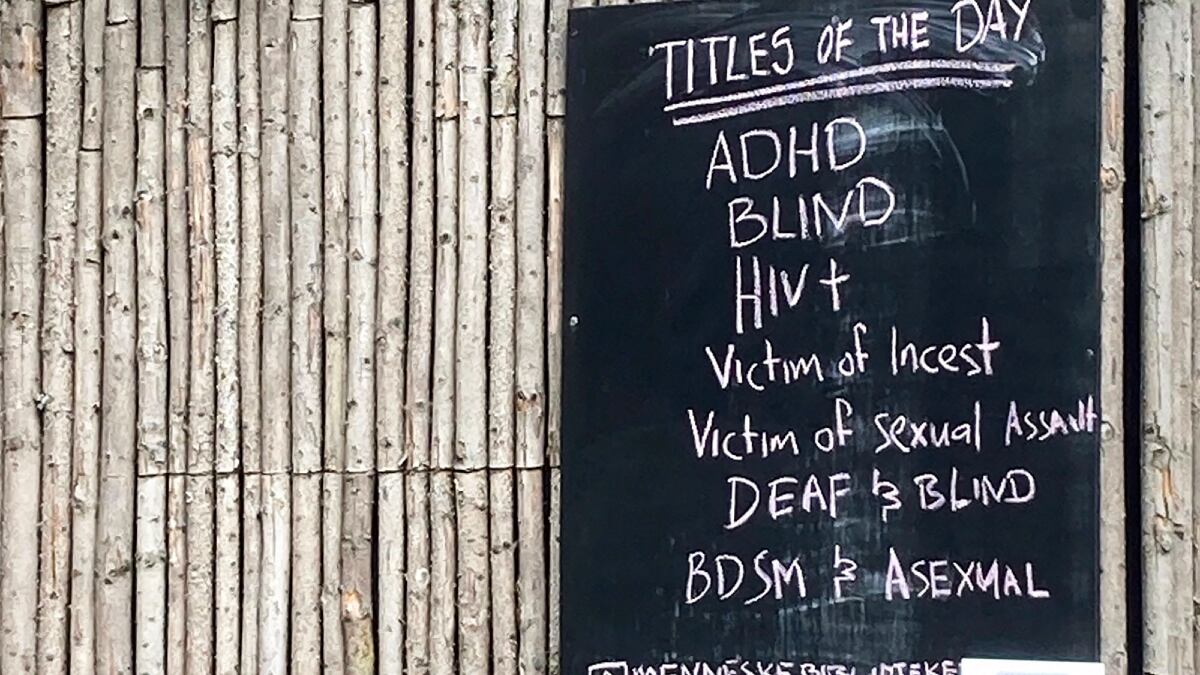 TITLES OF THE DAY
ADHD
BLIND
HIV+
Victim of Incest
Victim of Sexual Assault
DEAF & BLIND
BDSM & ASEXUAL
MENNESKEBIBLIOTEKE